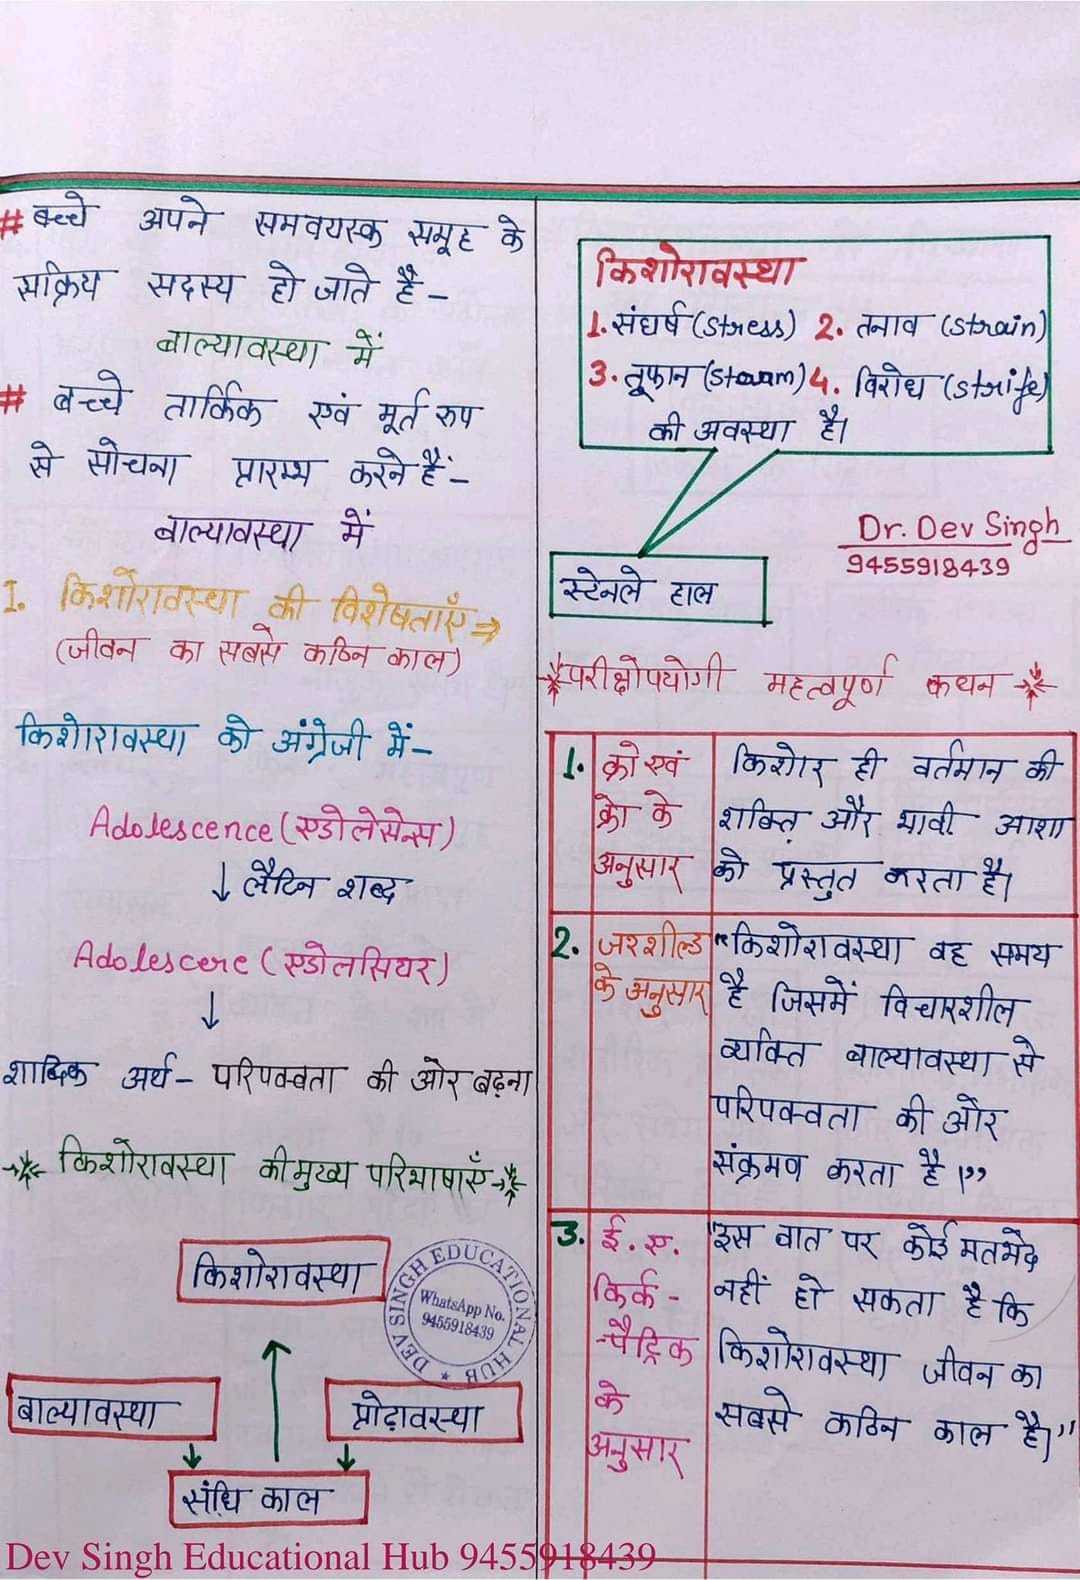 # बच्चे अपने समवयस्क समूह के
सक्रिय सदस्य हो जाते है -
बाल्यावस्था में
# बच्चे तार्किक एवं मूर्त रुप
से सोचना प्रारम्भ करने हैं -
बाल्यावस्था में
I. किशोरावस्था की विशेषताएँ ⇒
(जीवन का सबसे कठिन काल)
किशोरावस्था को अंग्रेजी में-
Adolescence (एडोलेसेन्स)
↓ लैटिन शब्द
Adolescere (एडोलसियर)
↓
शाब्दिक अर्थ - परिपक्वता की ओर बढ़ना
किशोरावस्था की मुख्य परिभाषाएँ
किशोरावस्था
बाल्यावस्था
प्रोढ़ावस्था
संधि काल
DEV SINGH EDUCATIONAL HUB
WhatsApp No.
9455918439
किशोरावस्था
1. संघर्ष (Stress) 2. तनाव (Strain)
3. तूफान (Storam) 4. विरोध (Strife)
की अवस्था है।
स्टेनले हाल
Dr. Dev Singh
9455918439
परीक्षोपयोगी महत्वपूर्ण कथन
1. क्रो एवं
क्रो के
अनुसार
किशोर ही वर्तमान की
शक्ति और भावी आशा
को प्रस्तुत करता है।
2. जरशील्ड
के अनुसार
"किशोरावस्था वह समय
है जिसमें विचारशील
व्यक्ति बाल्यावस्था से
परिपक्वता की ओर
संक्रमव करता है।"
3. ई. ए.
किर्क -
पैट्रिक
के
अनुसार
"इस वात पर कोई मतभेद
नहीं हो सकता है कि
किशोरावस्था जीवन का
सबसे कठिन काल है।"
Dev Singh Educational Hub 9455918439